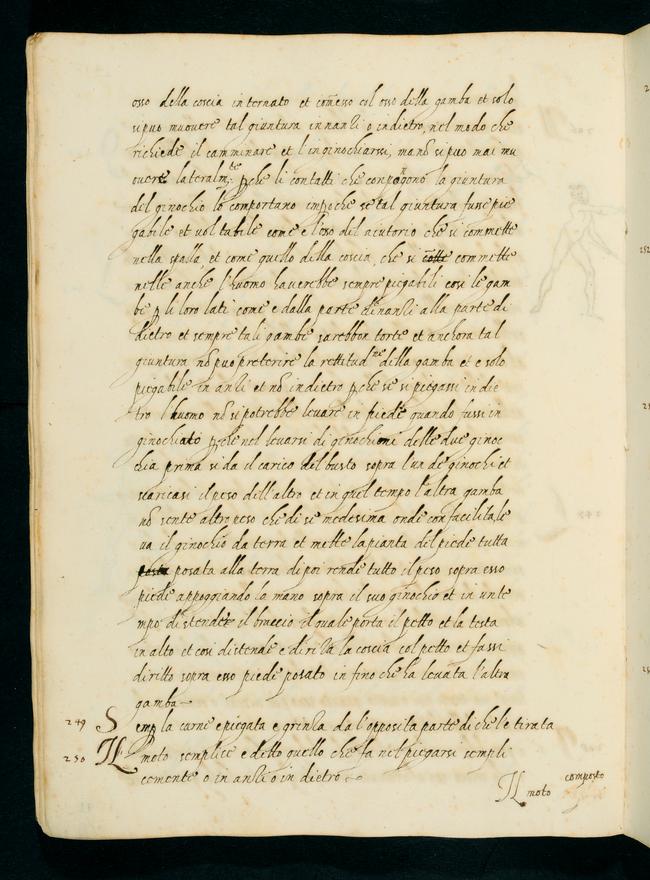 osso della coscia internato et com̃esso col osso della gamba et solo
si puo muovere tal giuntura innanzi o indietro, nel modo che
richiede il camminare et l'inginochiarsi, ma nõ si puo mai mu
overe lateralm:te pche li contatti che conpongono la giuntura
del ginochio lo comportano impoche se tal giuntura fusse pie
gabile et voltabile come e l'oso del aiutorio che si commette
nella spalla et come quello della coscia, che si cõtte committe
nelle anche l'huomo haverebbe sempre piegabili cosi le gam
be p li loro lati come e dalla parte dinanzi alla parte di
dietro et sempre tali gambe sarebbon torte et anchora tal
giuntura nõ puo preterire la rettitudne della gamba et e solo
piegabile in anzi et nõ indietro pche se si piegassi in die
tro l'huomo nõ si potrebbe levare in piede quando fussi in
ginochiato pche nel levarsi di ginochioni delle due ginoc
chia prima si da il carico del busto sopra l'un de ginochi et
scaricasi il peso dell'altro et in quel tempo l'altra gamba
nõ sente altro peso che di se medesima onde con facilita le
va il ginochio da terra et mette la pianta del piede tutta
posata alla terra di poi rende tutto il peso sopra esso
piede appoggiando la mano sopra il suo ginochio et in un te
mpo distendere il braccio il quale porta il petto et la testa
in alto et cosi distende e diriza la coscia col petto et fassi
diritto sopra esso piede posato in fino che ha levata l'altra
gamba
249 Semp la carne e piegata e grinza da l'opposita parte di che le tirata
250 Il moto semplice e detto quello che fa nel piegarsi sempli
cemente o in anzi o in dietro
Il moto composto